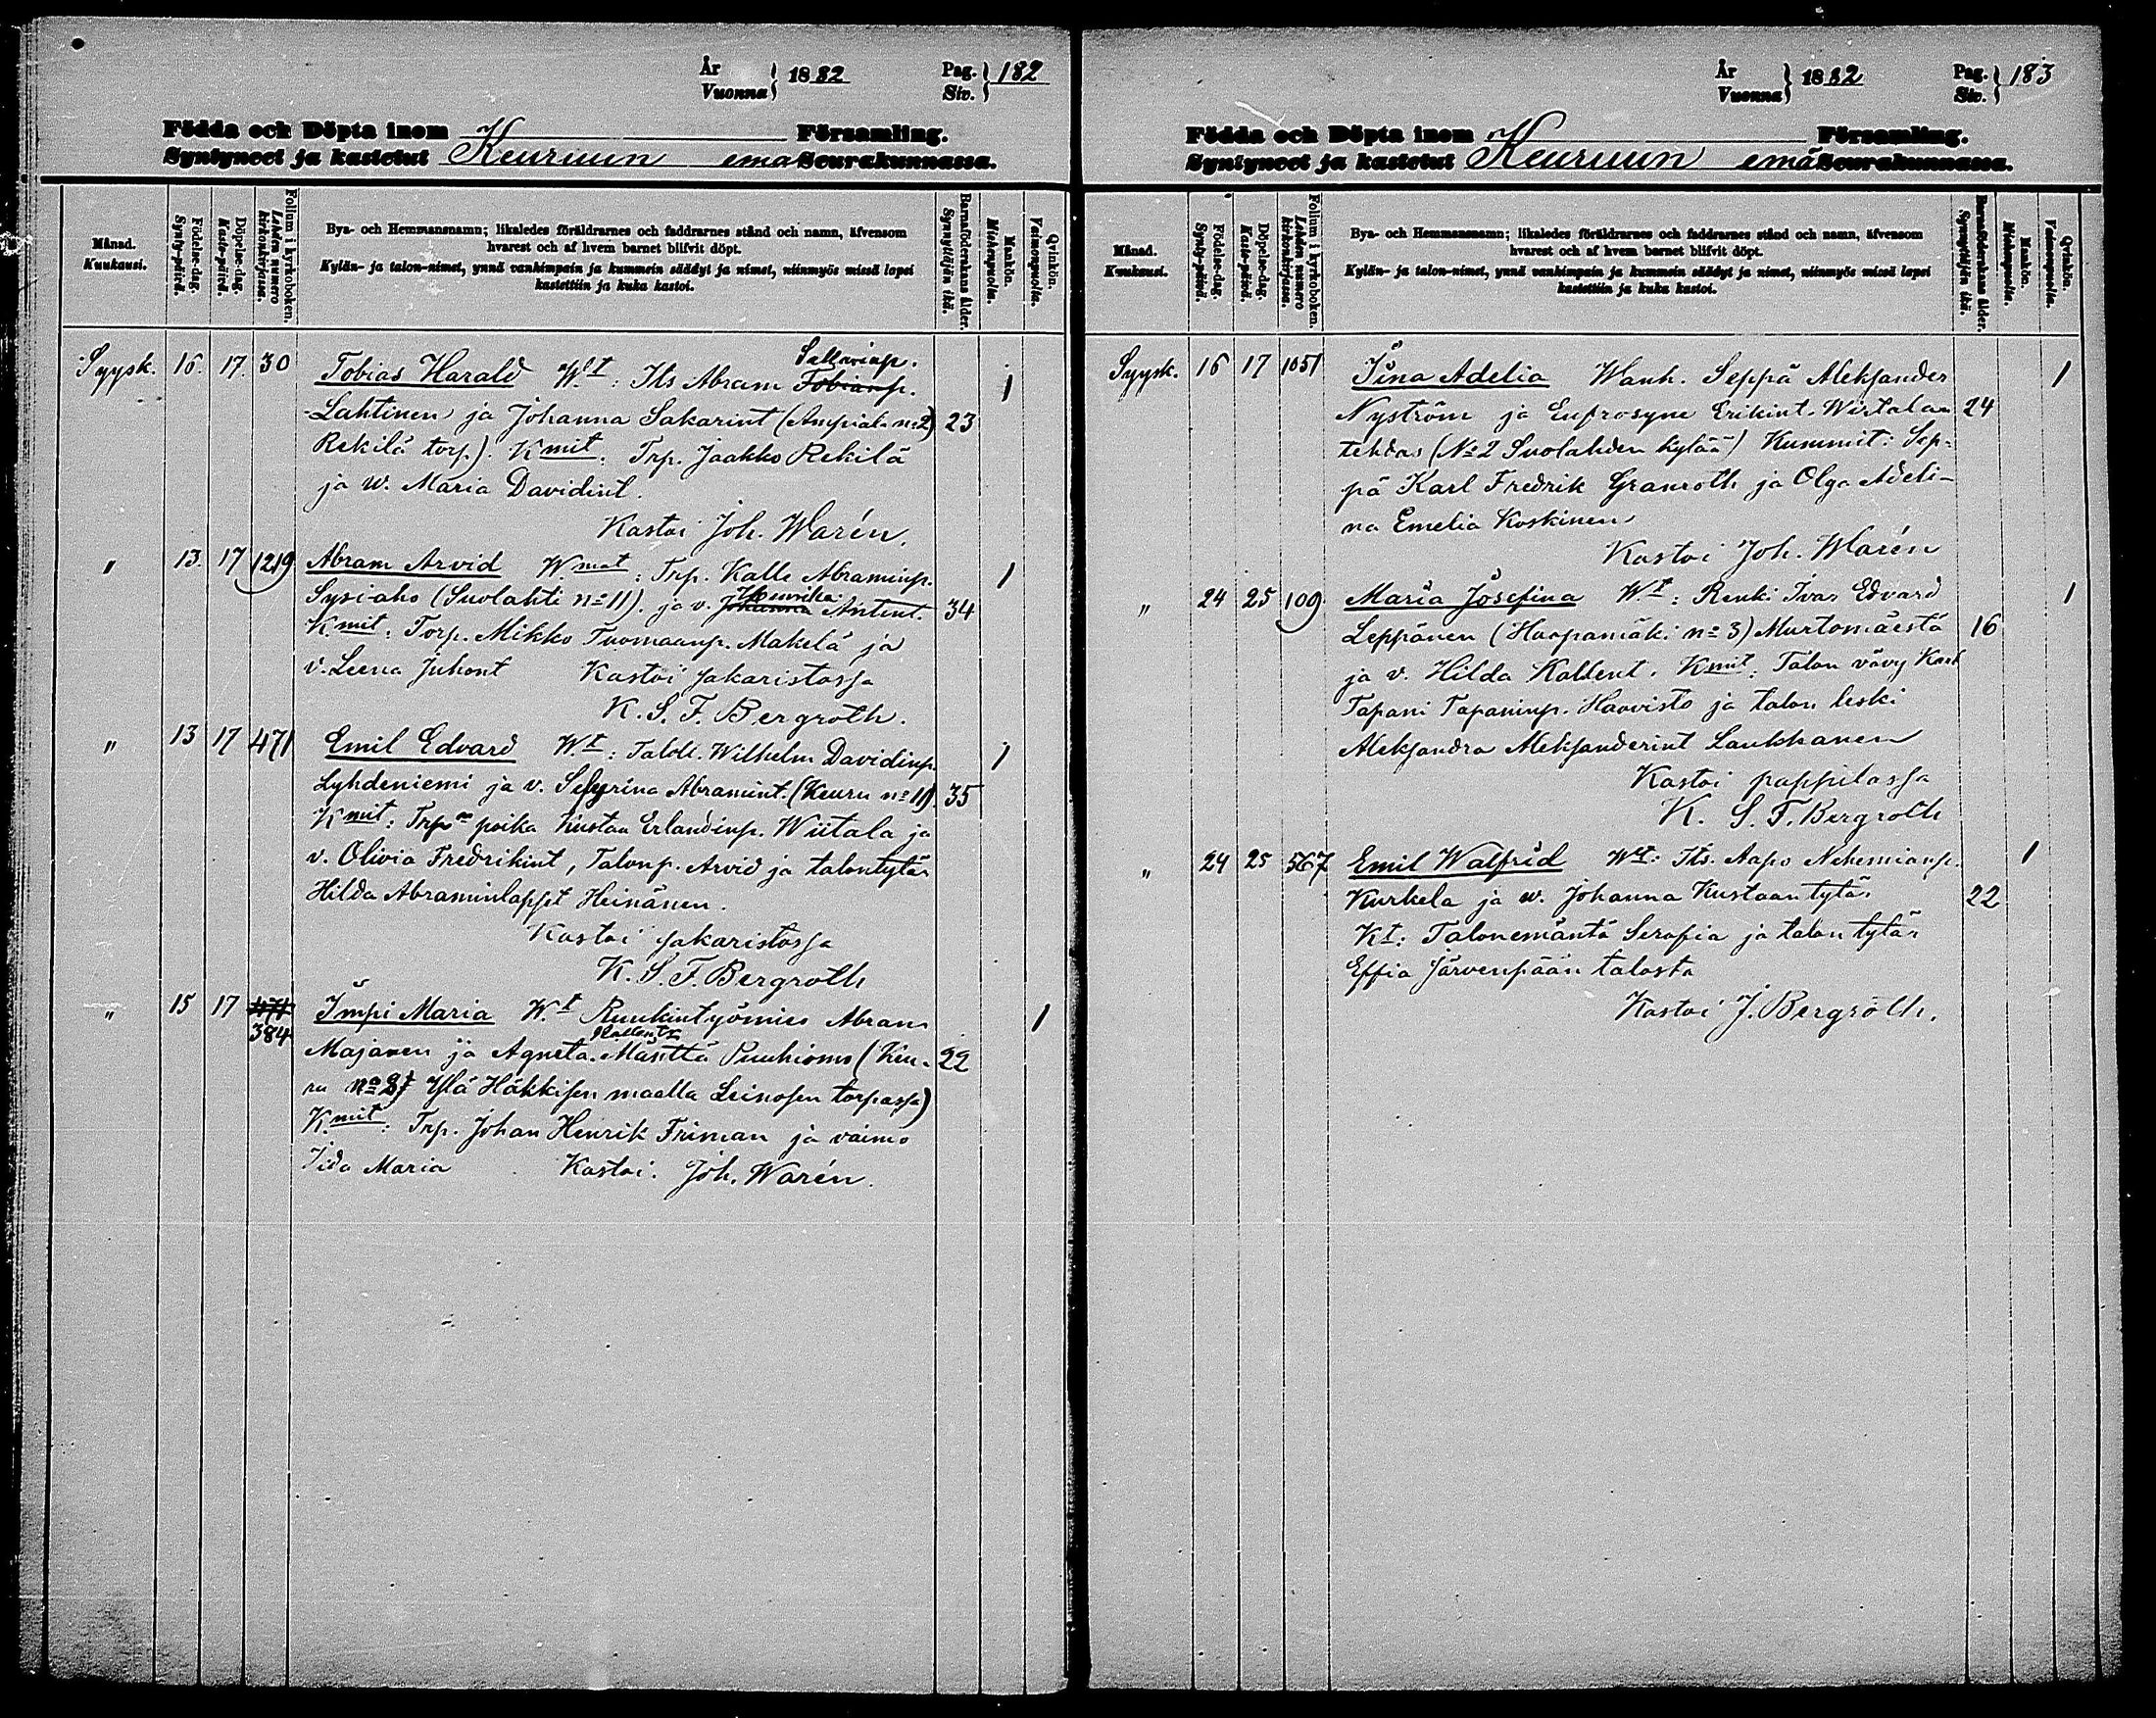 År
Vuonna } 1882
Pag.
Siv. } 182
Födda och Döpta inom Församling.
Syntyneet ja kastetut Keuruun emä Seurakunnassa.
Månad.
Kuukausi.
Födelse-dag.
Synty-päivä.
Döpelse-dag.
Kaste-päivä.
Folium i kyrkoboken.
Lehden numero kirkonkirjassa.
Bya- och Hemmansnamn; likaledes föräldrarnes och faddrarnes stånd och namn, äfvensom
hvarest och af hvem barnet blifvit döpt.
Kylän- ja talon-nimet, ynnä vanhimpain ja kummein säädyt ja nimet, niinmyös missä lapsi
kastettiin ja kuka kastoi.
Barnaföderskans ålder.
Synnyttäjän ikä.
Mankön.
Miehenpuolia.
Qvinkön.
Vaimonpuolia.
Syysk. 16. 17. 30 Tobias Harald W.t: Its Abram Tobianp. 1
Lahtinen ja Johanna Sakarint (Ampiala no 2) 23
Rekilä torp). Kmit. Trp. Jaakko Rekilä
ja w. Maria Davidint.
Kastoi Joh. Warén.
" 13. 17 1219 Abram Arvid W.mat: Trp. Kalle Abraminp. 1
Henrika
Sysi-aho (Suolahti no 11). ja v. Johanna Antint. 34
K.mit: Torp. Mikko Tuomaanp. Makelä ja
v. Leena Juhont Kastoi sakaristossa
K. S. F. Bergroth.
" 13 17 471 Emil Edvard W.t: Taloll. Wilhelm Davidinp. 1
Lyhdeniemi ja v. Abramint. (Keuru no 11) 35
Kmit: Trpn poika Kustaa Erlandinp. Wiitala ja
v. Olivia Fredrikint, Talonp. Arvid ja talontytär
Hilda Abraminlapset Heinänen.
Kastoi sakaristossa
K. S. F. Bergroth
" 15 17 471 Impi Maria W.t Ruukintyömies Abram 1
384
Majanen ja Agneta Mänttä Puuhiomo (Keu- 22
ru Ylä Häkkisen maalla Leinosen torpassa)
K.mit: Trp. Johan Henrik Friman ja vaimo
Iida Maria Kastoi. Joh. Warén.
År
Vuonna } 1882
Pag.
Siv. } 183
Födda och Döpta inom Församling.
Syntyneet ja kastetut Keuruun emä Seurakunnassa.
Månad.
Kuukausi.
Födelse-dag.
Synty-päivä.
Döpelse-dag.
Kaste-päivä.
Folium i kyrkoboken.
Lehden numero kirkonkirjassa.
Bya- och Hemmansnamn; likaledes föräldrarnes och faddrarnes stånd och namn, äfvensom
hvarest och af hvem barnet blifvit döpt.
Kylän- ja talon-nimet, ynnä vanhimpain ja kummein säädyt ja nimet, niinmyös missä lapsi
kastettiin ja kuka kastoi.
Barnaföderskans ålder.
Synnyttäjän ikä.
Mankön.
Miehenpuolia.
Qvinkön.
Vaimonpuolia.
Syysk. 16 17 1051 Iina Adelia Wanh. Seppä Aleksander 1
Nyström ja Eufrosyne Erikint. Wirtalan 24
tehdas (No 2 Suolahden kylää) Kummit: Sep-
pä Karl Fredrik Granroth ja Olga Adeli-
na Emelia Koskinen
Kastoi Joh. Warén
" 24 25 109 Maria Josefina W.t: Renki Ivar Edvard 1
Leppänen (Haapamäki no 3) Murtomäestä 16
ja v. Hilda Kallent. Kmit: Talon vävy Karl
Tapani Tapaninp. Haavisto ja talon leski
Aleksandra Aleksanderint Laukkanen
Kastoi pappilassa
K. S. F. Bergroth
" 24 25 567 Emil Walfrid Wt: Its. Aapo Nehemianp. 1
Kurkela ja w. Johanna Kustaantytär 22
Kt: Talonemäntä Serafia ja talon tytär
Effia Järvenpään talosta
Kastoi J. Bergroth.